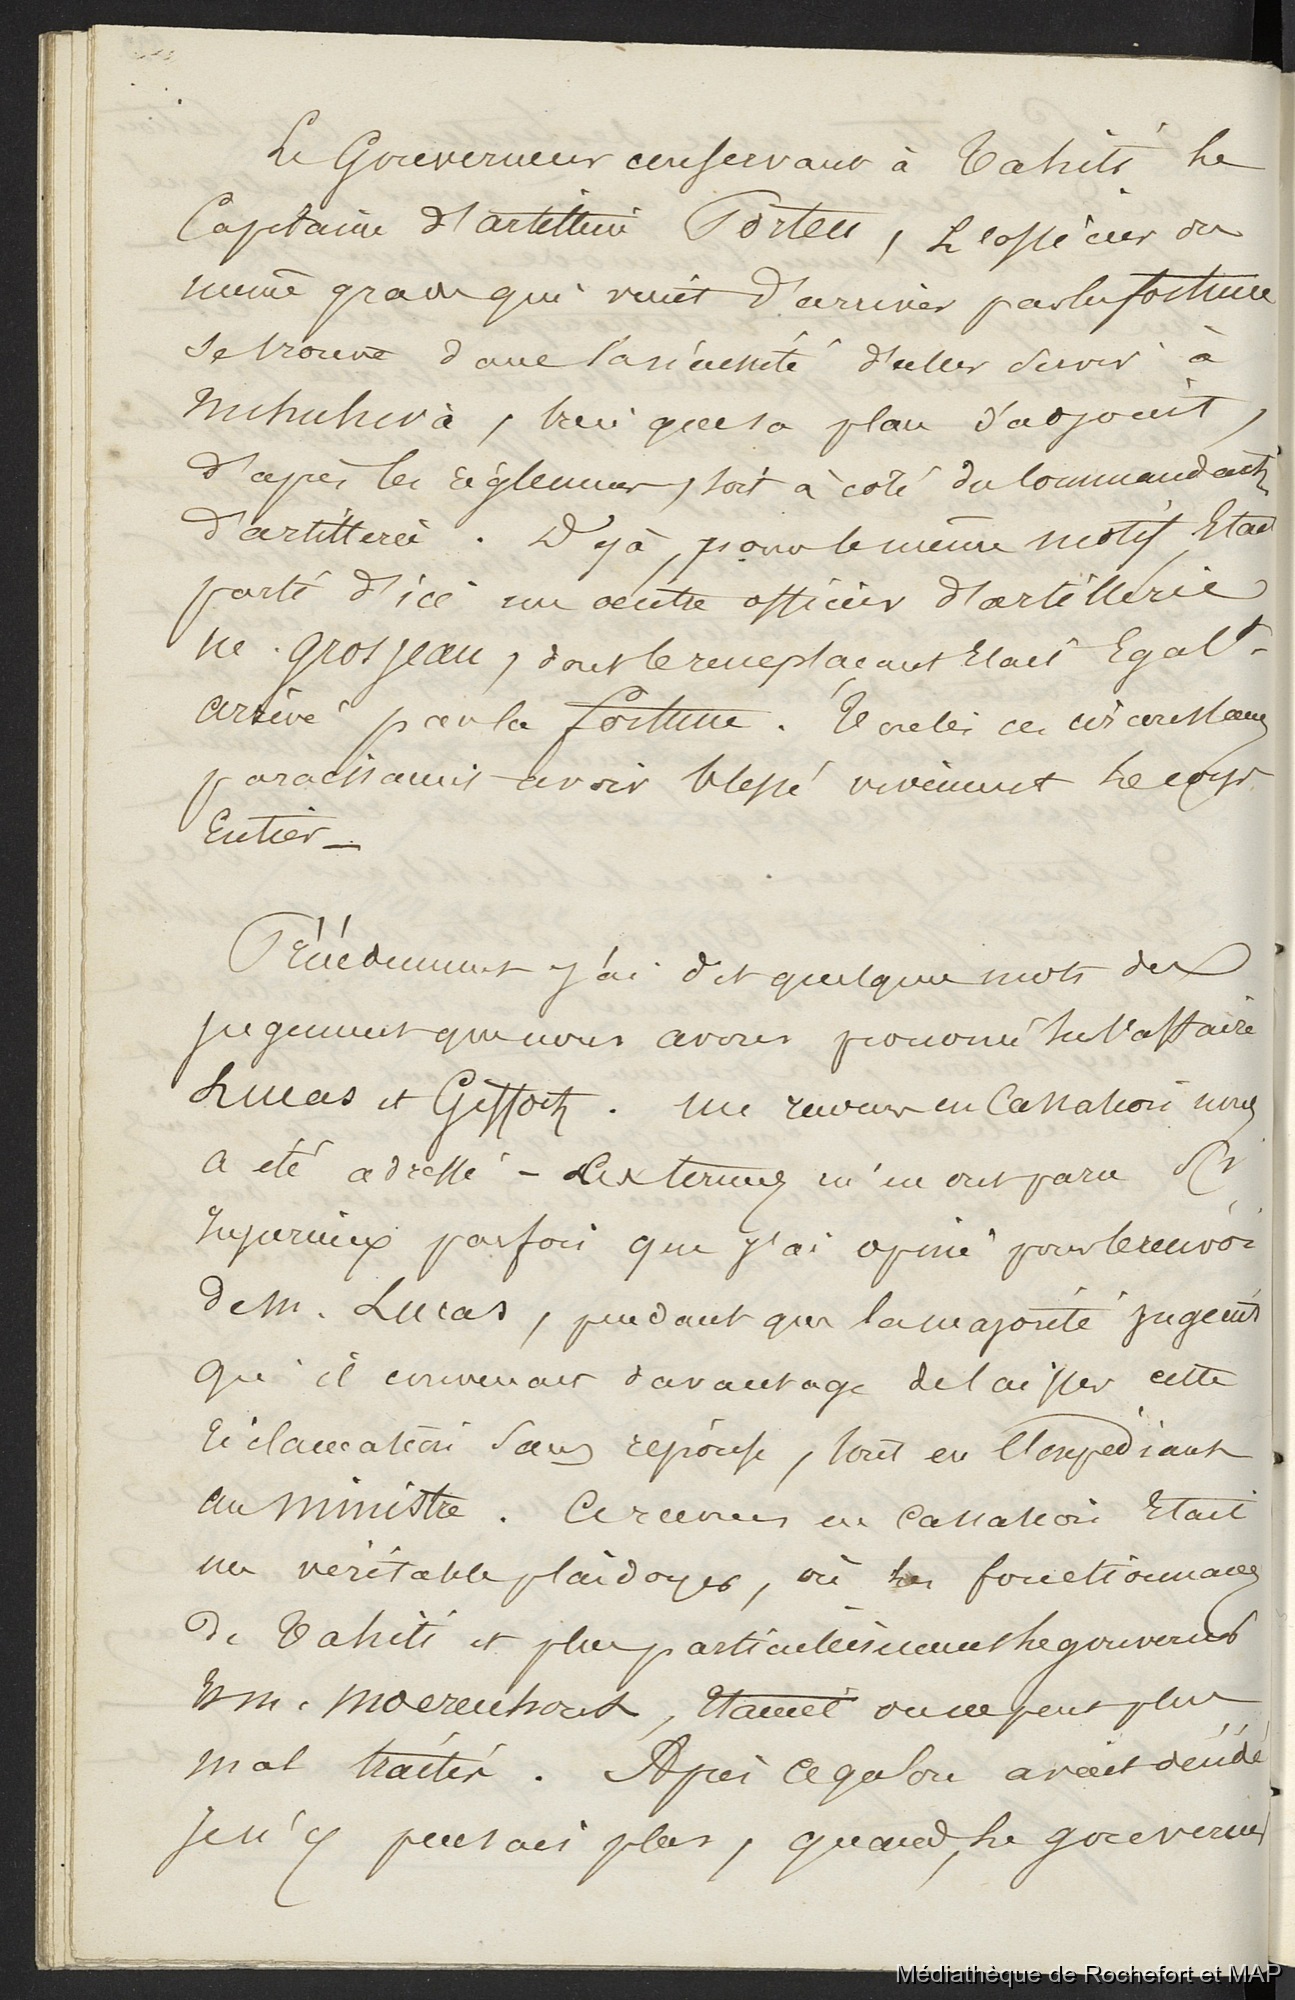 Le Gouverneur conservant à Tahiti le
Capitaine d'artillerie Porteu, L'officier du
même grade qui vient d'arriver par la fortune
se trouve dans la nécessité d'aller servir à
Nuhuhiva, bien que sa place d'adjoint,
d'après les règlemens, soit à côté du Commandant
d'artillerie. Déjà, pour le même motif Etait
parti d'ici un autre officier d'artillerie
Mr. Grosjean, dont le remplaçant Etait Egalt
arrivé par la fortune. Toutes ces circonstances
paraissaient avoir blessé vivement le corps
Entier_
Précédemment j'ai dit quelques mots du
jugement que nous avons prononcé sur l'affaire
Lucas et Giffoch. un recours en Cassation nous
a été adressé - Les termes m'en ont paru si
Injurieux parfois que j'ai opiné pour le renvoi
de M. Lucas, pendant que la majorité jugeait
qu'il convenait davantage de laisser cette
réclamation sans réponse, tout en l'expédiant
au Ministre. Ce recours en Cassation Etait
un véritable plaidoyer, où les fonctionnaires
de Tahiti et plus particulièrement le gouverneur
Et M. Moerenhout, Etaient on ne peut plus
mal traités. Après ce qu'on avait décidé
je n'y pensais plus, quand, le gouverneur
Médiathèque de Rochefort et MAP